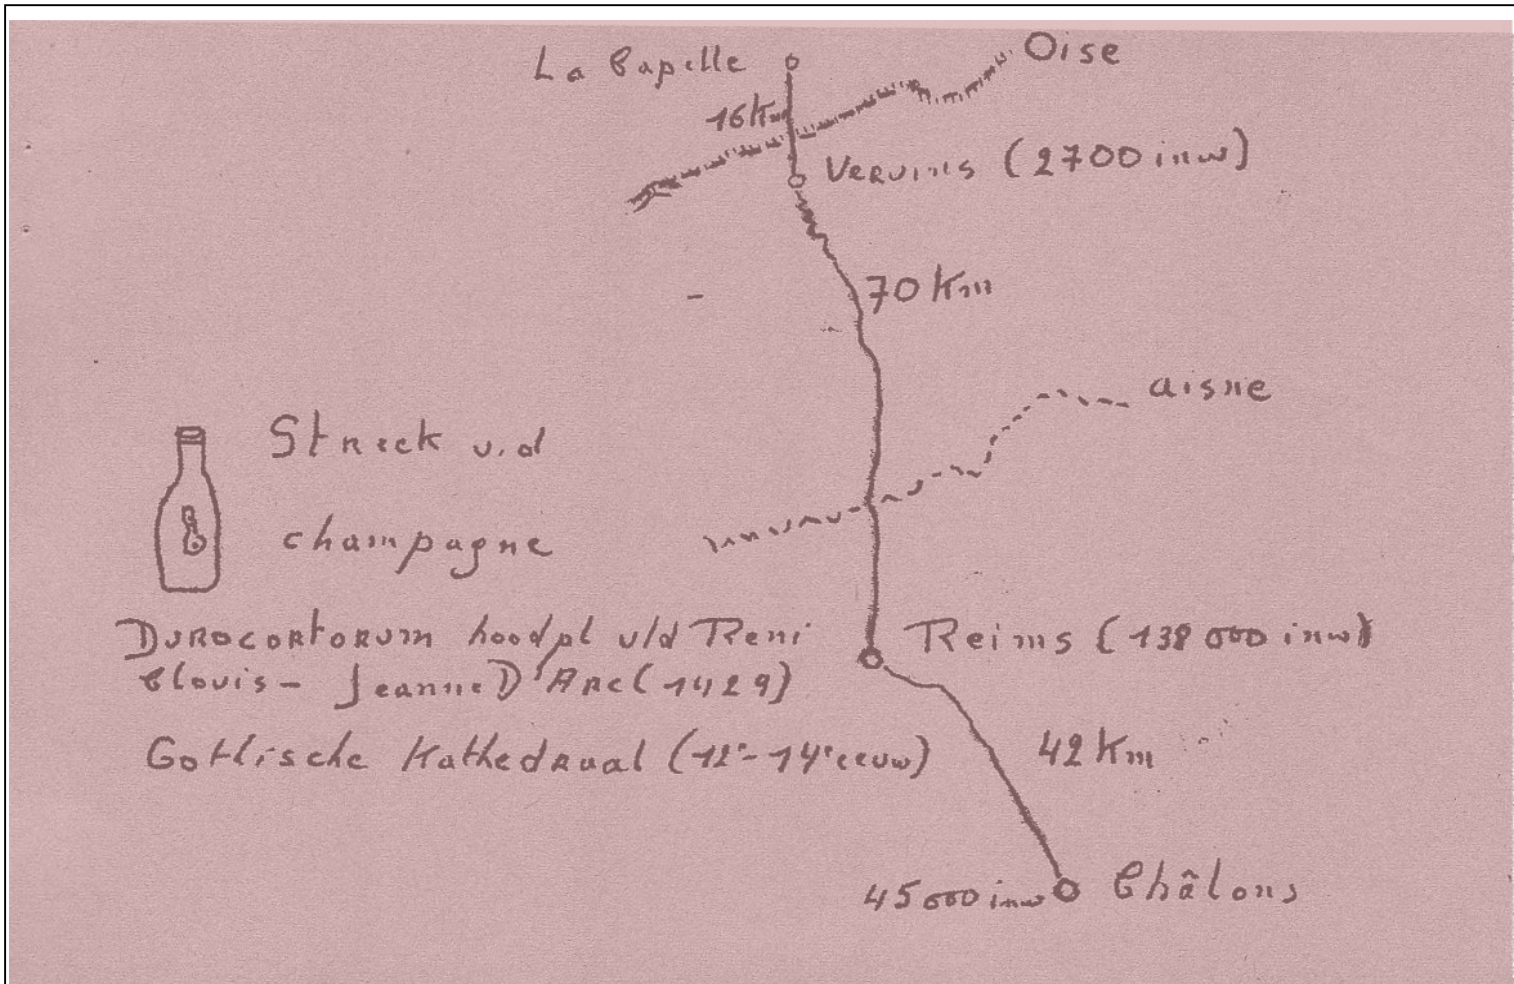 La Capelle
Oise
16 Km
Vervins (2700 inw)
70 Km
aisne
Streek v.d
champagne
Durocortorum hoofdpl v/d Remi
Reims (138 000 inw)
Clovis - Jeanne D'Arc (1429)
Gothische Kathedraal (12e - 14e eeuw)
42 Km
45 000 inw
Châlons